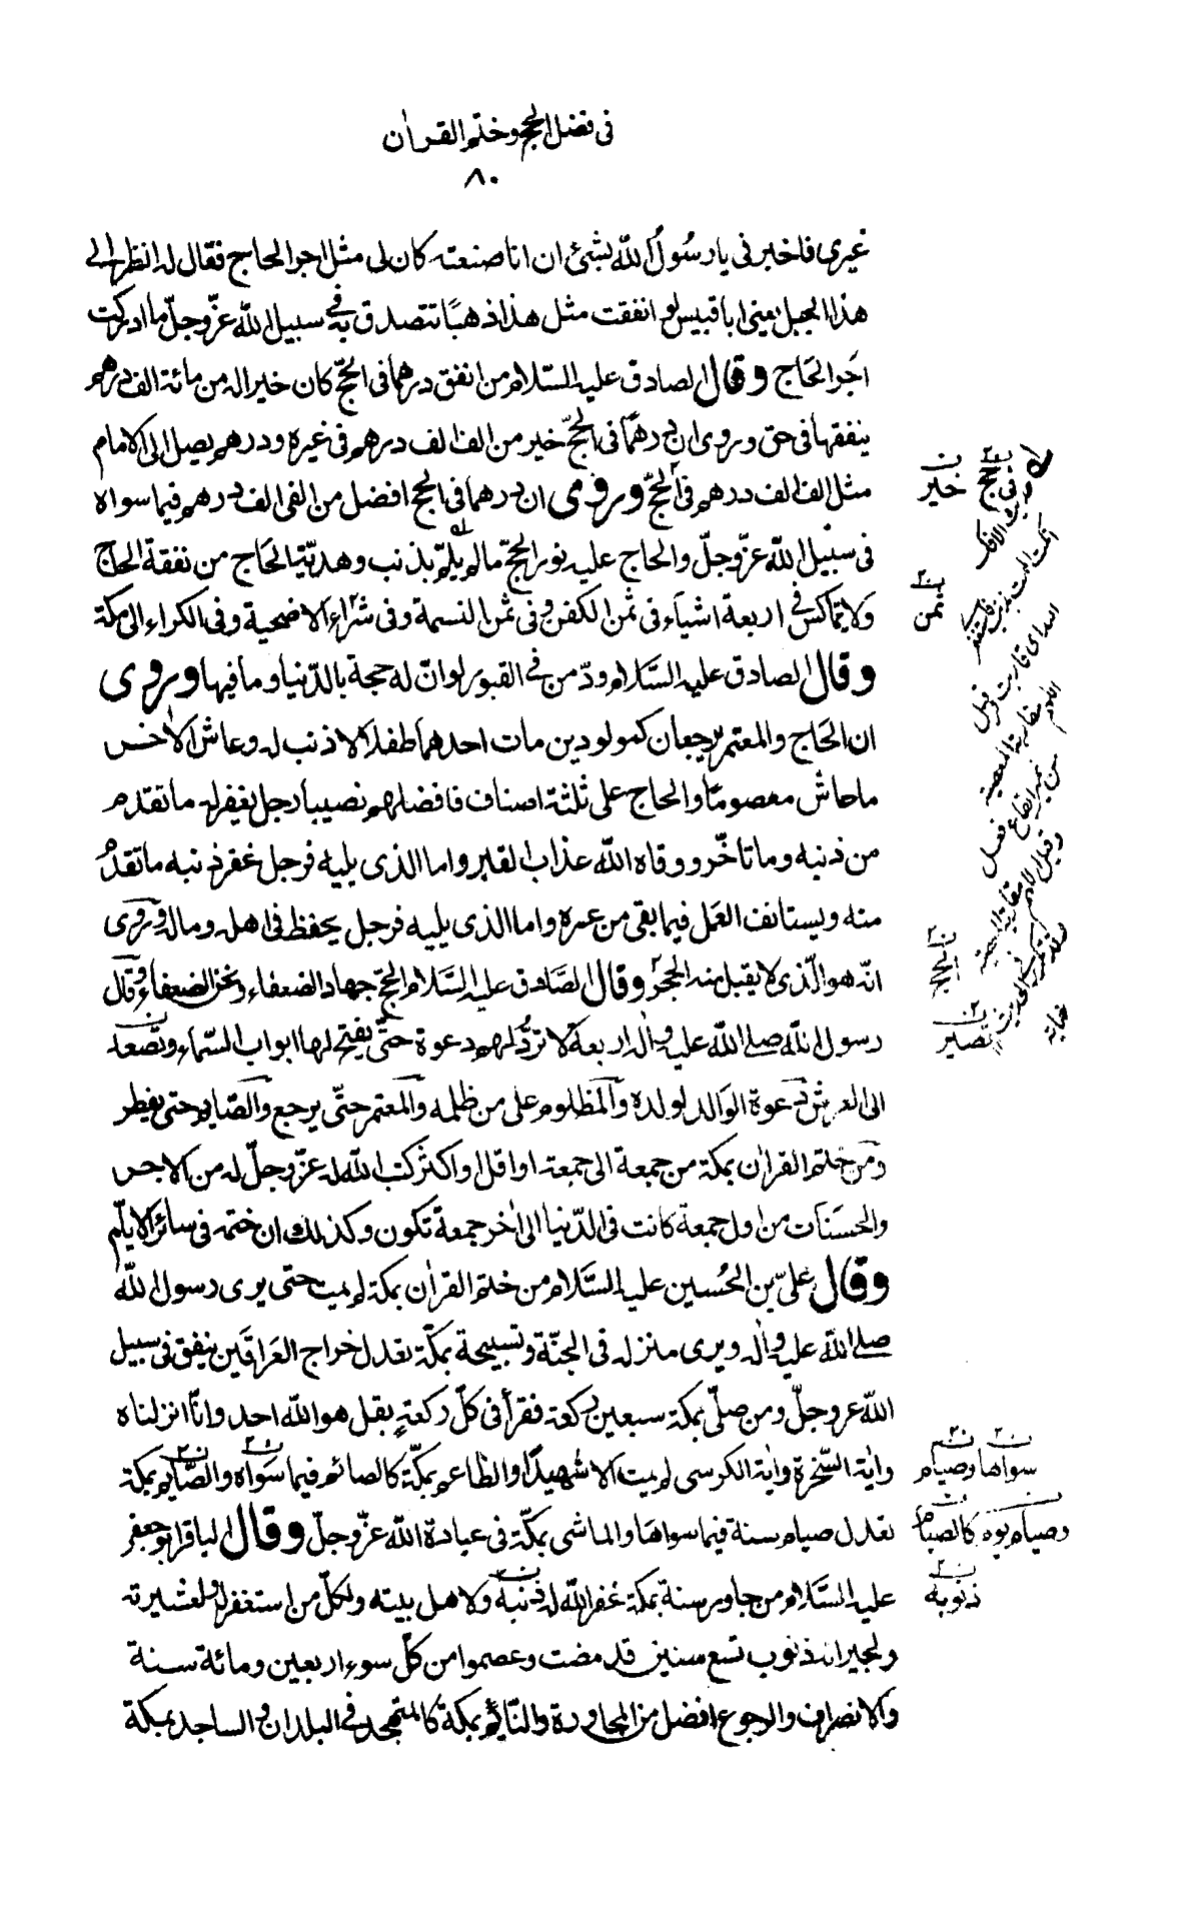 فى فضل الحج وختم القرآن
٨٠
غيرى فاخبرنى يا رسول الله بشئ ان انا صنعته كان لى مثل اجر الحاج فقال له انظر الى
هذا الجبل يعنى ابا قبيس لو انفقت مثل هذا ذهبًا تتصدق به فى سبيل الله عزّ وجلّ ما ادركت
اجر الحاج وقال الصادق عليه السّلام من انفق درهما فى الحجّ كان خيرا له من مائة الف درهم
ينفقها فى حق وروى ان درهمًا فى الحجّ خير من الف الف درهم فى غيره ودرهم يصل الى الامام
مثل الف الف درهم فى الحجّ وروى ان درهما فى الحج افضل من الفى الف درهم فيما سواه
فى سبيل الله عزّ وجلّ والحاج عليه نور الحجّ ما لم يلمّ بذنب وهديّة الحاج من نفقة الحاج
ولا يماكس فى اربعة اشياء فى ثمن الكفن وفى ثمن النسمة وفى شراء الاضحية وفى الكراء الى مكة
وقال الصادق عليه السّلام ودّ من فى القبور لو انّ له حجة بالدّنيا وما فيها وروى
ان الحاج والمعتمر يرجعان كمولودين مات احدهما طفلا لا ذنب له وعاش الاخر
ما عاش معصومًا والحاج على ثلثة اصناف فافضلهم نصيبا رجل يغفر له ما تقدم
من ذنبه وما تاخّر ووقاه الله عذاب القبر واما الذى يليه فرجل غفر ذنبه ما تقدم
منه ويستانف العمل فيما بقى من عمره واما الذى يليه فرجل يحفظ فى اهله وماله وروى
انّه هو الّذى لا يقبل منه الحج وقال الصّادق عليه السّلام الحجّ جهاد الضعفاء ونحن الضعفاء وقال
رسول الله صلى الله عليه وآله اربعة لا تردّ لهم دعوة حتّى يفتح لها ابواب السّماء وتصعد
الى العرش دعوة الوالد لولده والمظلوم على من ظلمه والمعتمر حتّى يرجع والصّايم حتى يفطر
ومن ختم القرآن بمكة من جمعة الى جمعة او اقل او اكثر كتب الله له عزّ وجلّ له من الاجر
والحسنات من اول جمعة كانت فى الدّنيا الى آخر جمعة تكون وكذلك ان ختمه فى سائر الايّام
وقال علىّ بن الحسين عليه السّلام من ختم القرآن بمكة لم يمت حتى يرى رسول الله
صلى الله عليه وآله ويرى منزله فى الجنّة وتسبيحة بمكّة تعدل خراج العراقين ينفق فى سبيل
الله عز وجلّ ومن صلّى بمكة سبعين ركعة فقرأ فى كلّ ركعةٍ بقل هو الله احد وانّا انزلناه
وآية السّخرة وآية الكرسى لم يمت الا شهيدًا والطاعم بمكّة كالصائم فيما سواه والصّايم بمكة
تعدل صيام سنة فيما سواها والماشى بمكّة فى عبادة الله عزّ وجلّ وقال الباقر ابو جعفر
عليه السّلام من جاور سنة بمكة غفر الله له ذنبه ولاهل بيته ولكلّ من استغفر له ولعشيرته
ولجيرانه ذنوب تسع سنين قد مضت وعصموا من كلّ سوء اربعين ومائة سنة
والانصراف والرجوع افضل من المجاورة والنّائم بمكة كالمتهجد فى البلدان والساجد بمكة
خير
ثمن
الحج
تصير
سواها وصيام
وصيام يوم كالصيام
ذنوبه